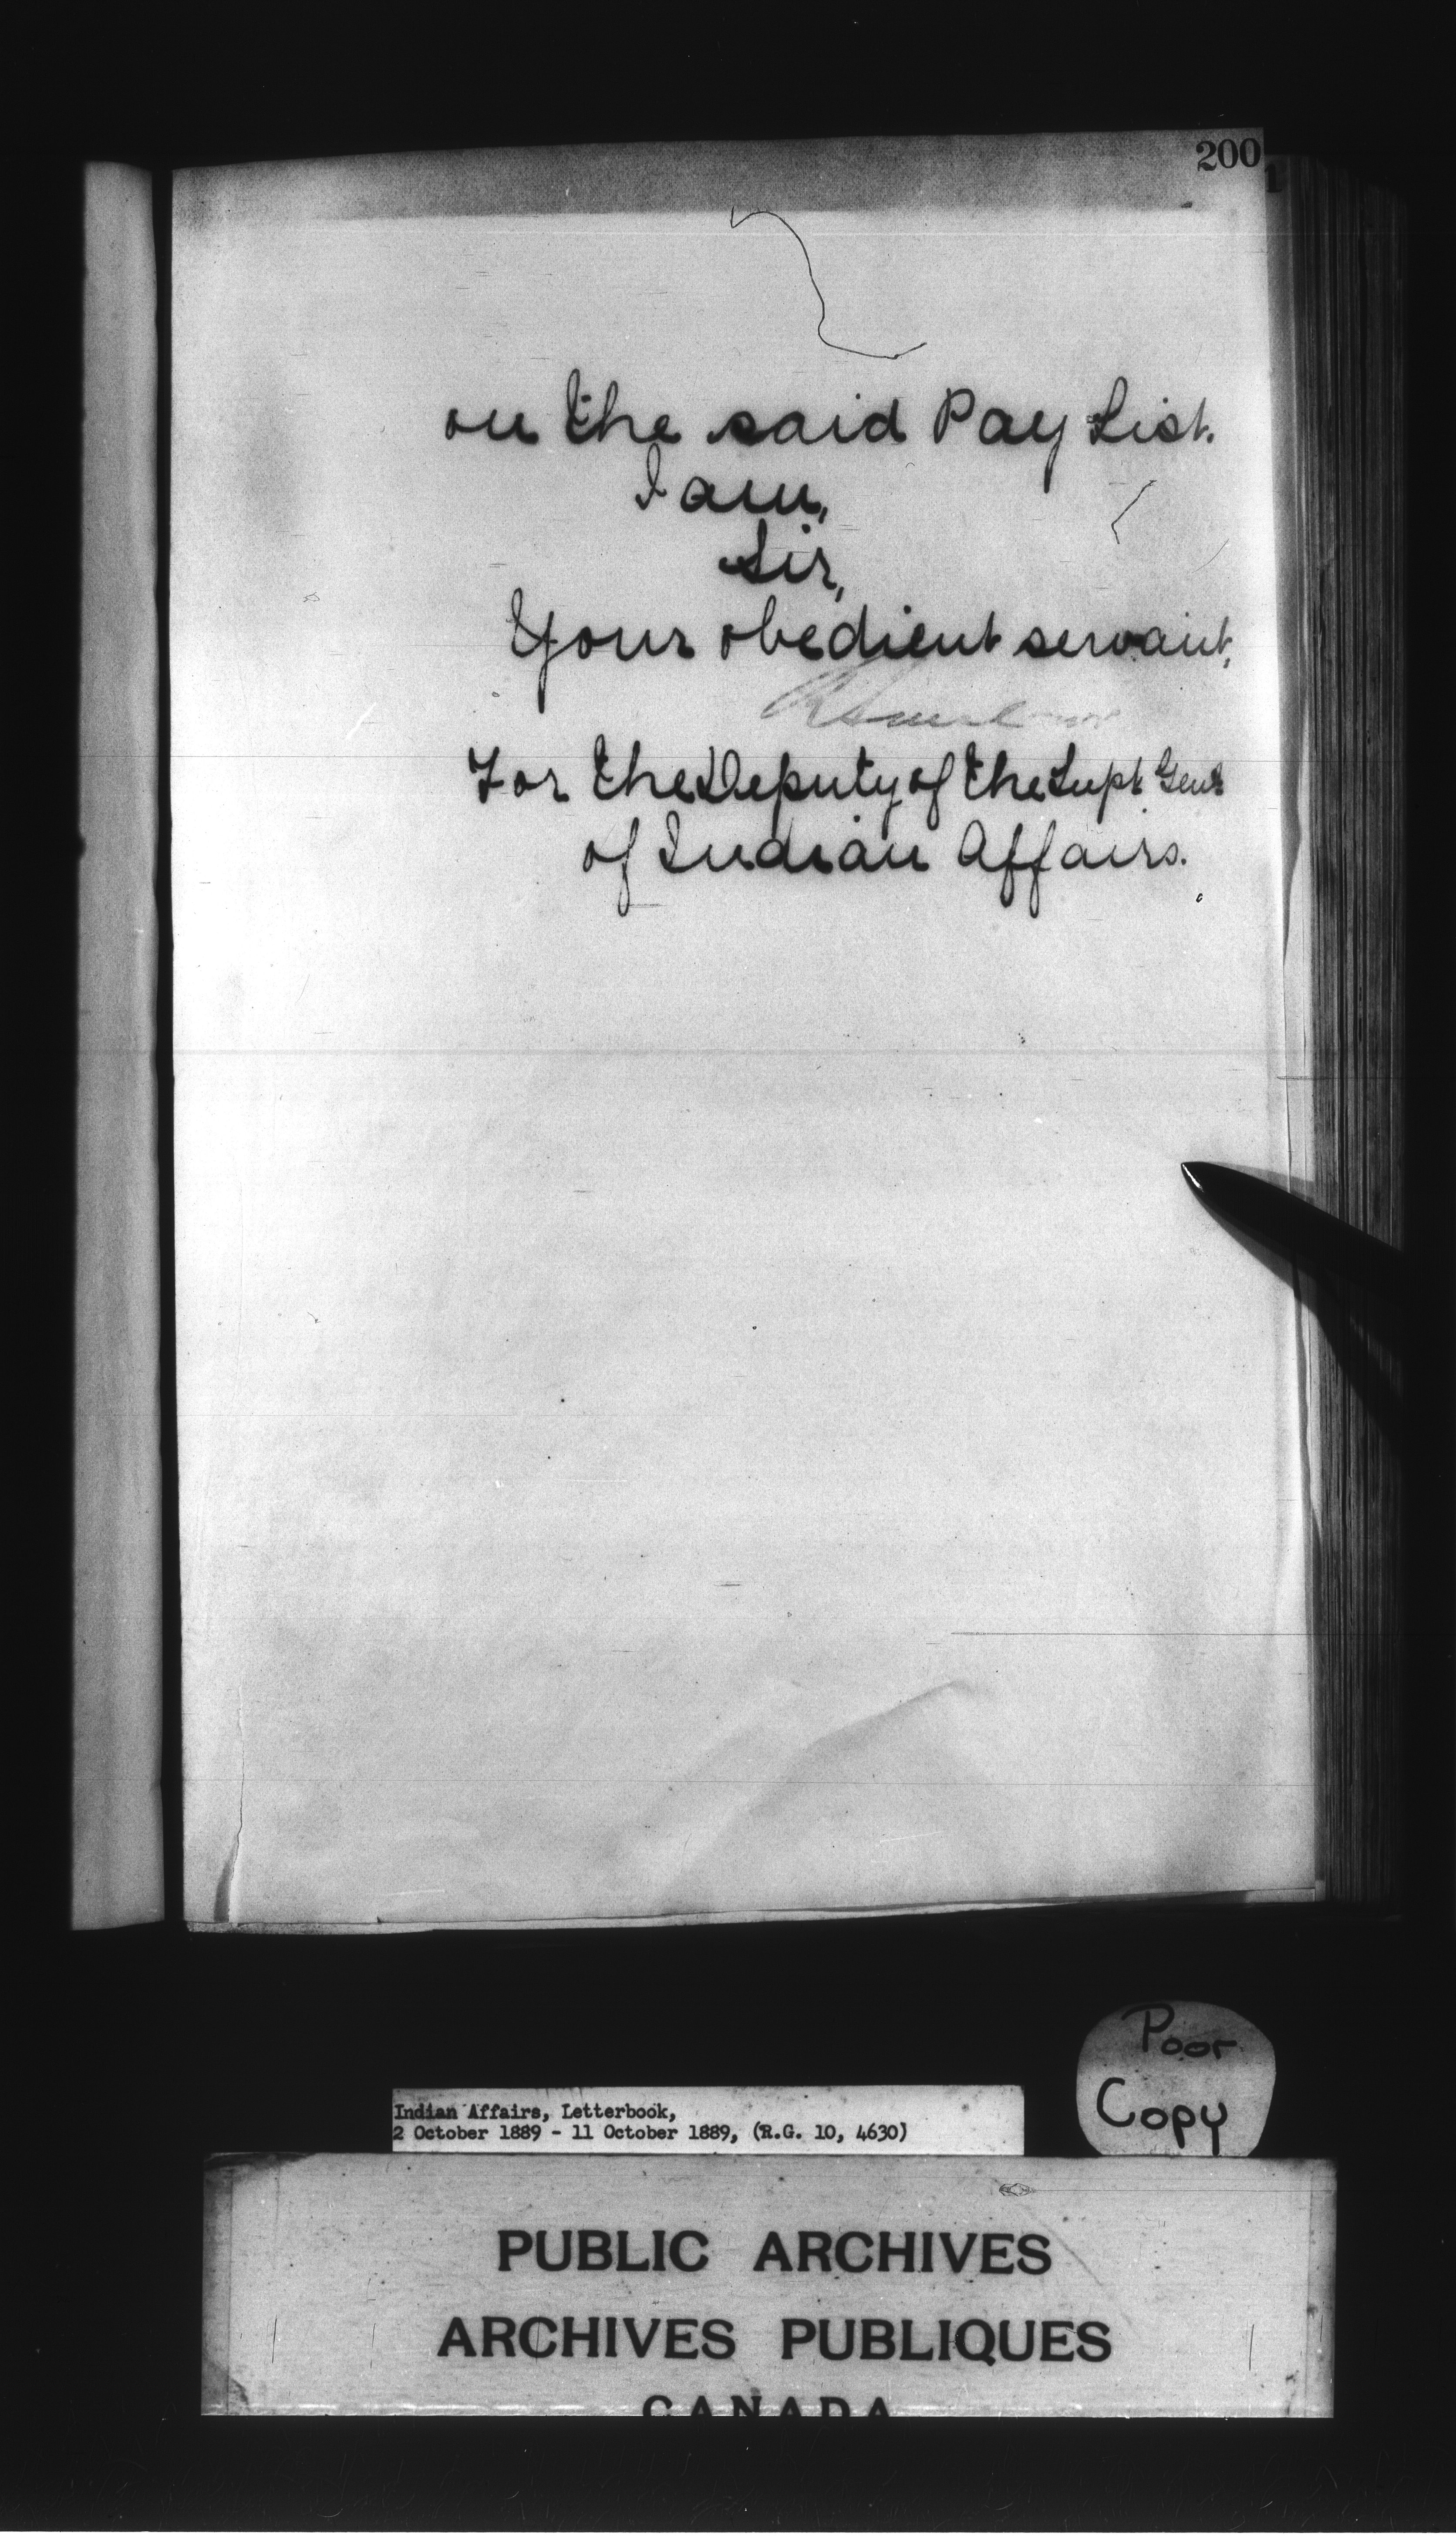 200
1
on the said Pay List.
I am,
Sir,
Your obedient servant,
For the Deputy of the Supt Genl
of Indian Affairs.
Poor
Copy
Indian Affairs, Letterbook,
2 October 1889 - 11 October 1889, (R.G. 10, 4630)
PUBLIC ARCHIVES
ARCHIVES PUBLIQUES
CANADA